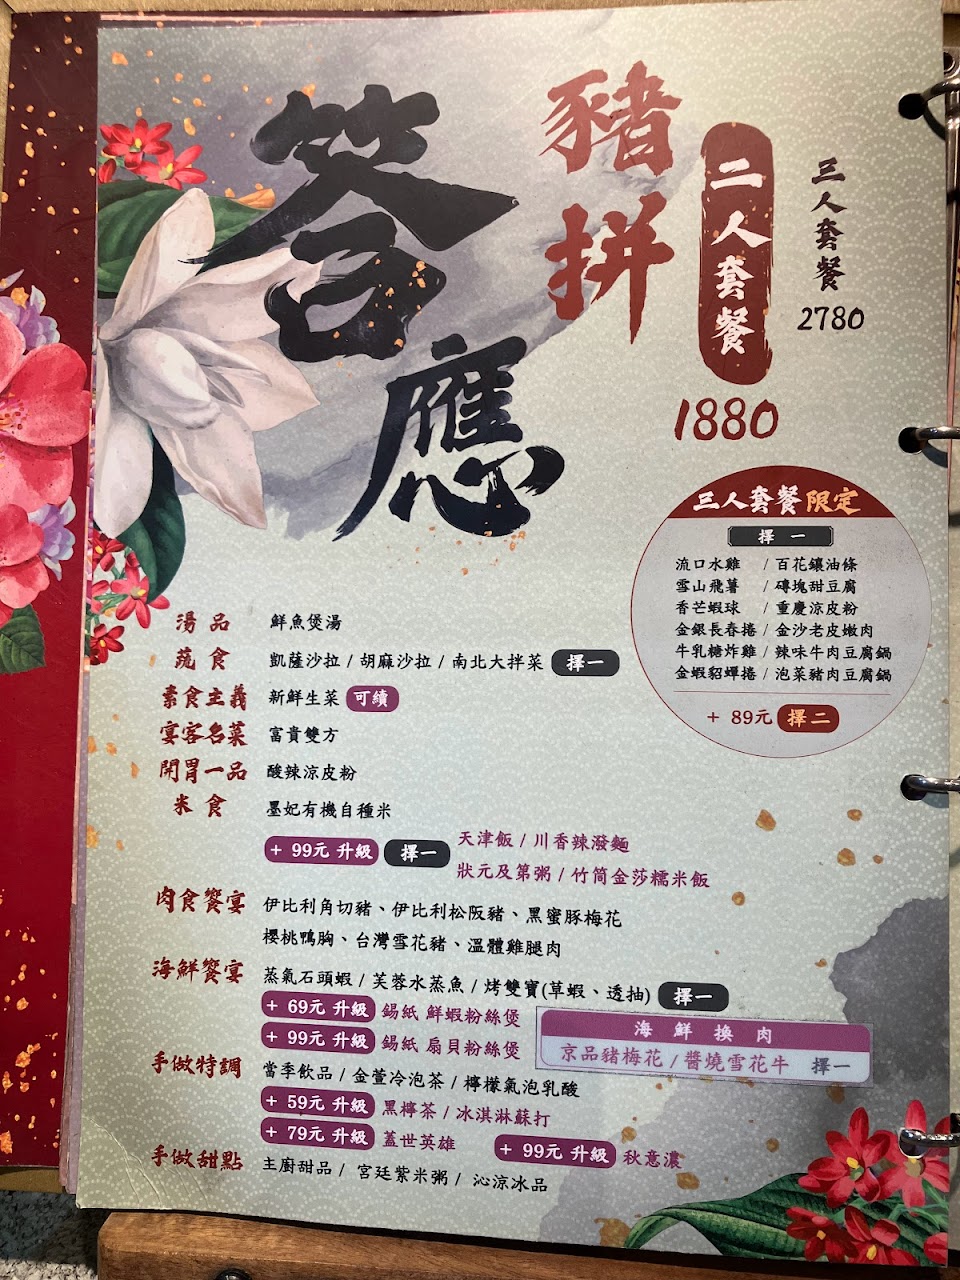 答應
豬拼
二人套餐
1880
三人套餐
2780
三人套餐限定
擇一
流口水雞 / 百花鑲油條
雪山飛薯 / 磚塊甜豆腐
香芒蝦球 / 重慶涼皮粉
金銀長春捲 / 金沙老皮嫩肉
牛乳糖炸雞 / 辣味牛肉豆腐鍋
金蝦貂蟬捲 / 泡菜豬肉豆腐鍋
+ 89元 擇二
湯品 鮮魚煲湯
蔬食 凱薩沙拉 / 胡麻沙拉 / 南北大拌菜 擇一
素食主義 新鮮生菜 可續
宴客名菜 富貴雙方
開胃一品 酸辣涼皮粉
米食 墨妃有機自種米
+ 99元 升級 擇一 天津飯 / 川香辣潑麵
狀元及第粥 / 竹筒金莎糯米飯
肉食饗宴 伊比利角切豬、伊比利松阪豬、黑蜜豚梅花
櫻桃鴨胸、台灣雪花豬、溫體雞腿肉
海鮮饗宴 蒸氣石頭蝦 / 芙蓉水蒸魚 / 烤雙寶(草蝦、透抽) 擇一
+ 69元 升級 錫紙 鮮蝦粉絲煲
+ 99元 升級 錫紙 扇貝粉絲煲
海鮮換肉
京品豬梅花 / 醬燒雪花牛 擇一
手做特調 當季飲品 / 金萱冷泡茶 / 檸檬氣泡乳酸
+ 59元 升級 黑檸茶 / 冰淇淋蘇打
+ 79元 升級 蓋世英雄 + 99元 升級 秋意濃
手做甜點 主廚甜品 / 宮廷紫米粥 / 沁涼冰品